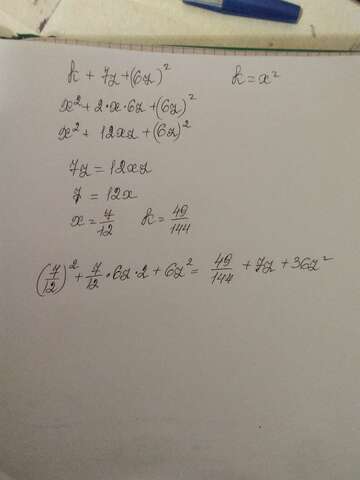 k + 7z + (6z)² k = x²
x² + 2·x·6z + (6z)²
x² + 12xz + (6z)²
7z = 12xz
7 = 12x
x = 7/12 k = 49/144
(7/12)² + 7/12 · 6z · 2 + 6z² = 49/144 + 7z + 36z²